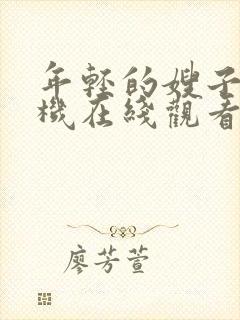 年轻的嫂子
機在綫觀看
廖芳萱